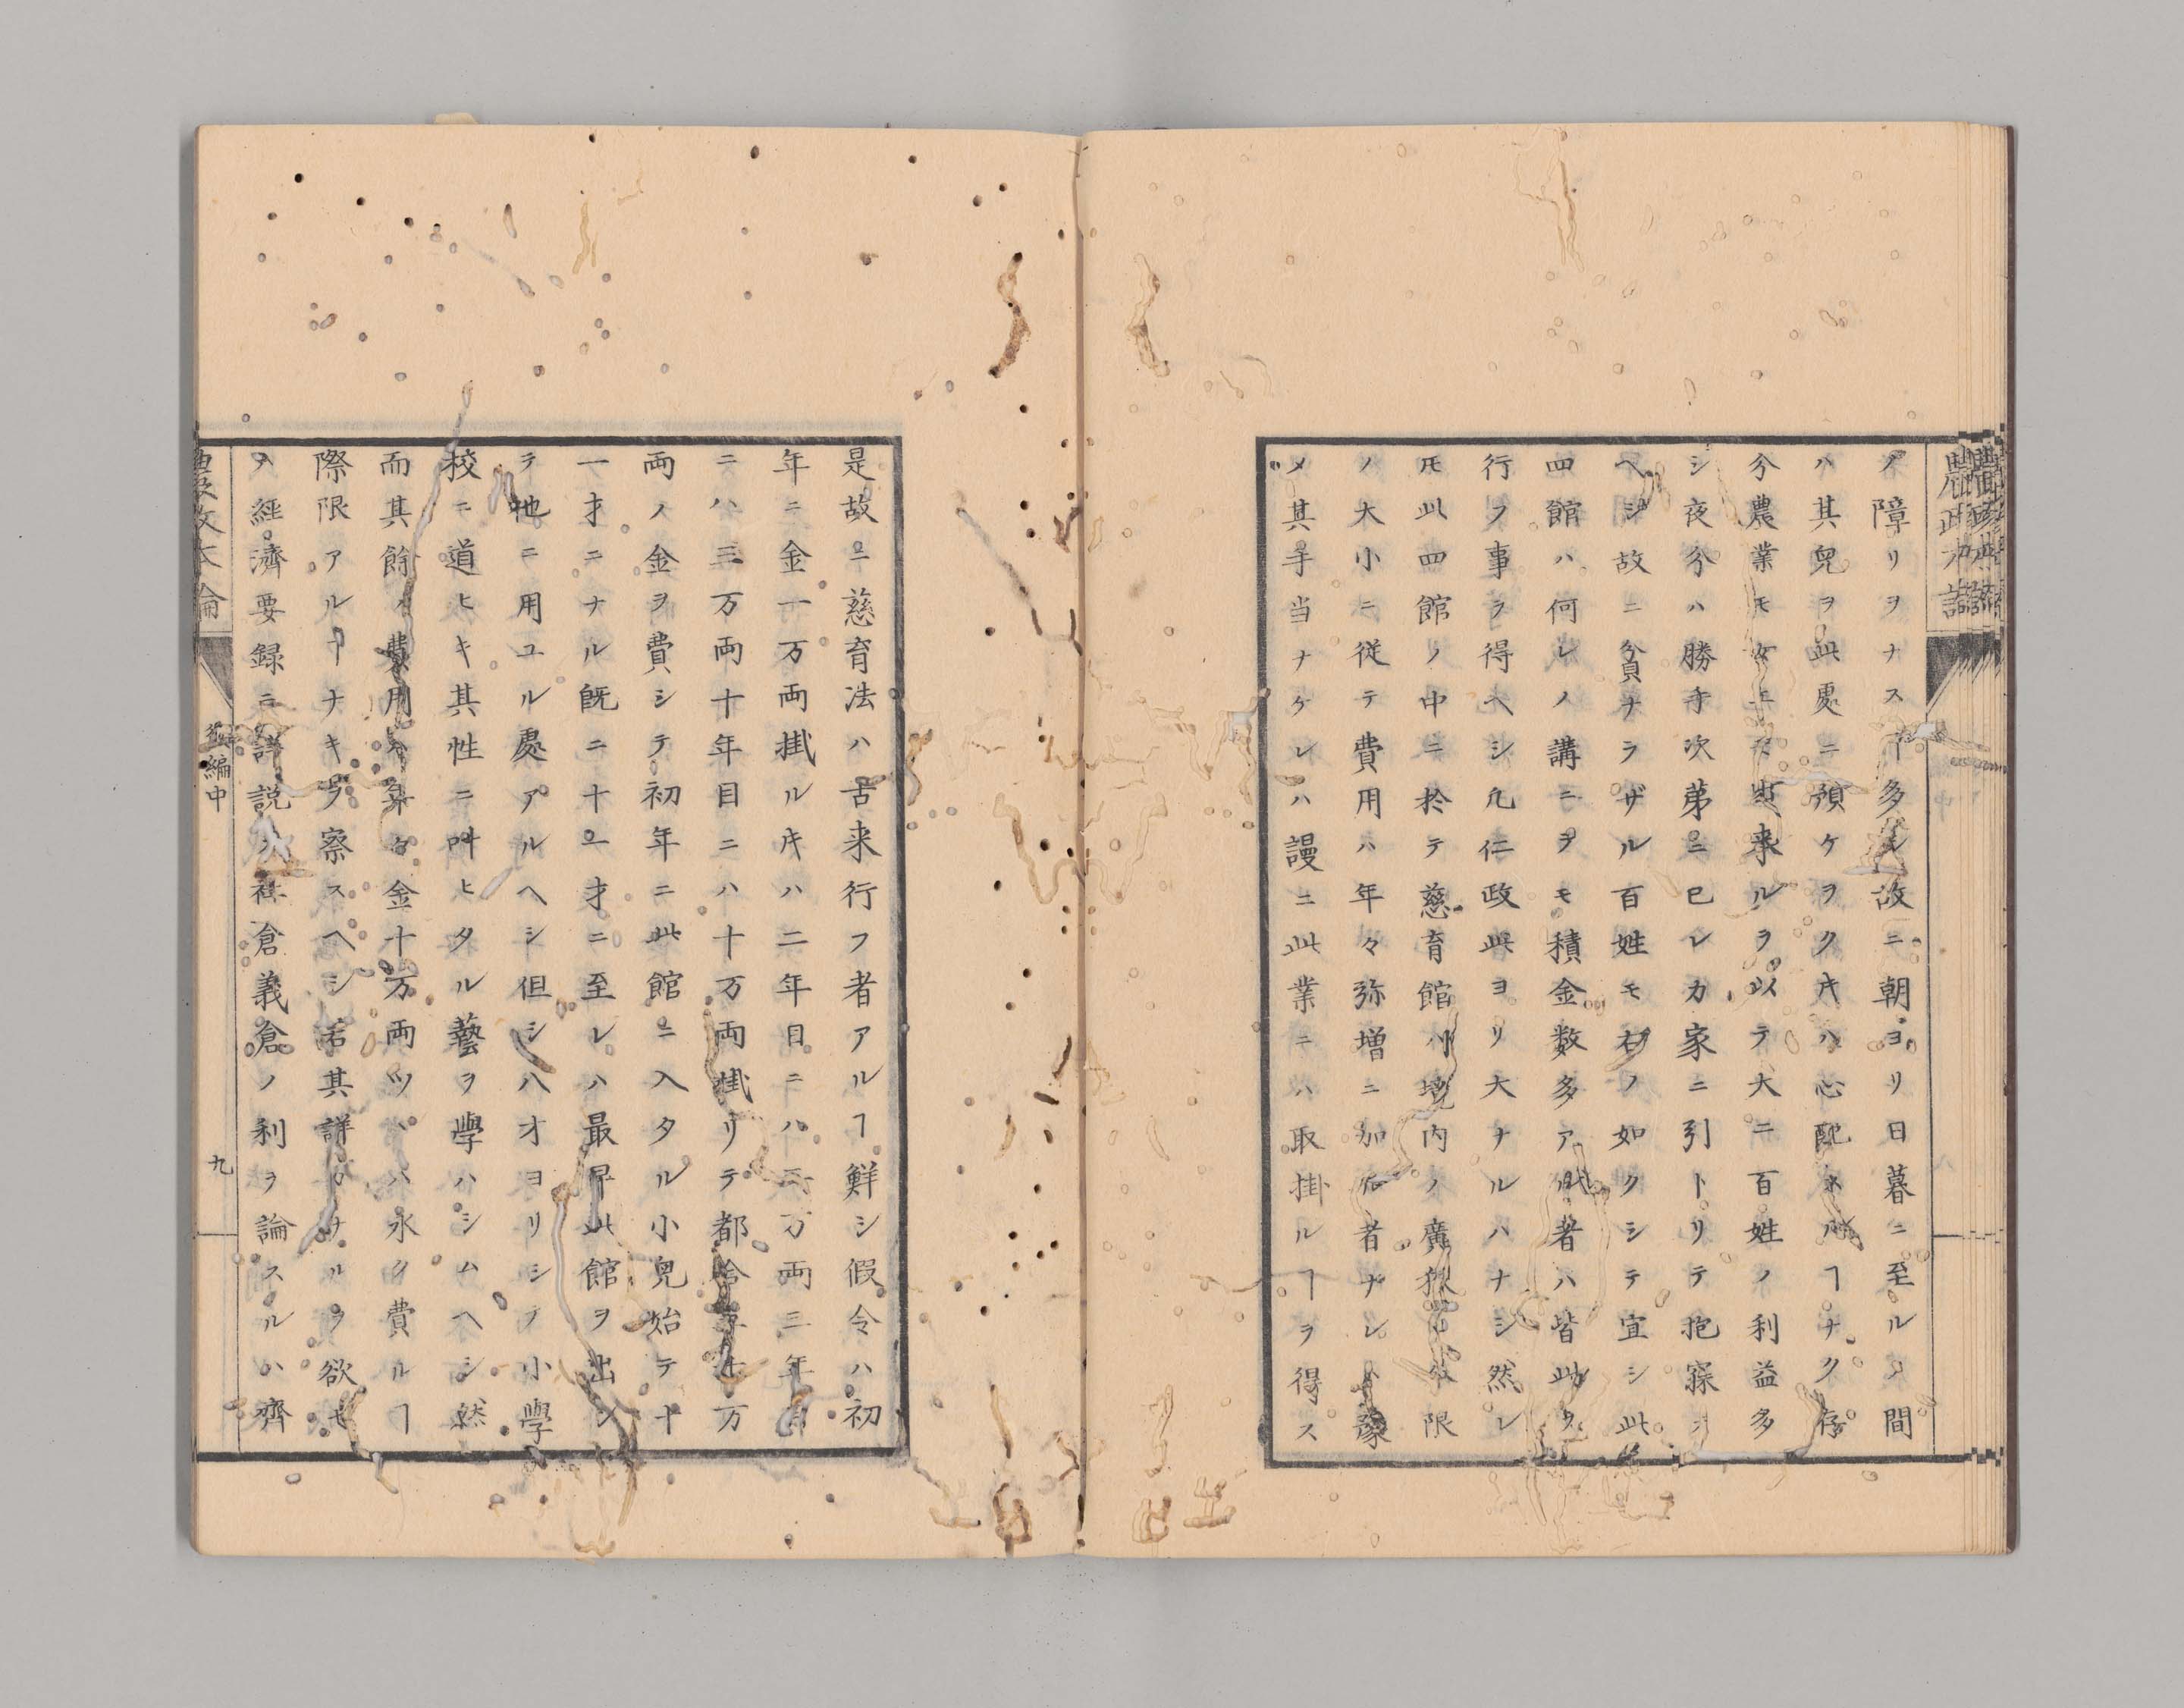 ノ障リヲナスヿ多シ故ニ朝ヨリ日暮ニ至ルノ間
ハ其兒ヲ此處ニ預ケヲク𪜈ハ心配ネルヿナク存
分農業モ出來ルヲ以テ大ニ百姓ノ利益多
シ夜分ハ勝手次第ニ已レカ家ニ引トリテ抱寐シ
ヘシ故ニ貧ナラザル百姓モ右ノ如クシテ宜シ此
四館ハ何レノ講ニヲモ積金数多アル者ハ皆此
行フ事ヲ得ヘシ凡仁政此ヨリ大ナルハナシ然レ
𪜈此四館ノ中ニ於テ慈育館ハ境内ノ廣狹分限
ノ大小ニ従テ費用ハ年々弥増ニ加ル者ナレハ豫
メ其手当ナケレハ謾ニ此業ニハ取掛ルヿヲ得ス
農政本論
是故ニ慈育法ハ古来行フ者アルヿ鮮シ假令ハ初
年ニ金一万両掛ルキハ二年目ニハ二万両三年目
ニハ三万両十年目ニハ十万両掛リテ都合五十五万
両ノ金ヲ費シテ初年ニ此館ニ入タル小兒始テ十
一才ニナル既ニ十一才ニ至レハ最早此館ヲ出シ
テ他ニ用ユル處アルヘシ但シ八才ヨリシテ小學
校ニ道ヒキ其性ニ叶ヒタル藝ヲ學ハシムヘシ然
而其餘ノ費用ヲ算ルニ金十万両ツヽハ永ク費ルヿ
際限アルヿナキヲ察スヘシ若其詳カナルヲ欲セ
ハ經濟要録ニ詳説ス社倉義倉ノ利ヲ論スルハ齊
農政本論
後編中
九